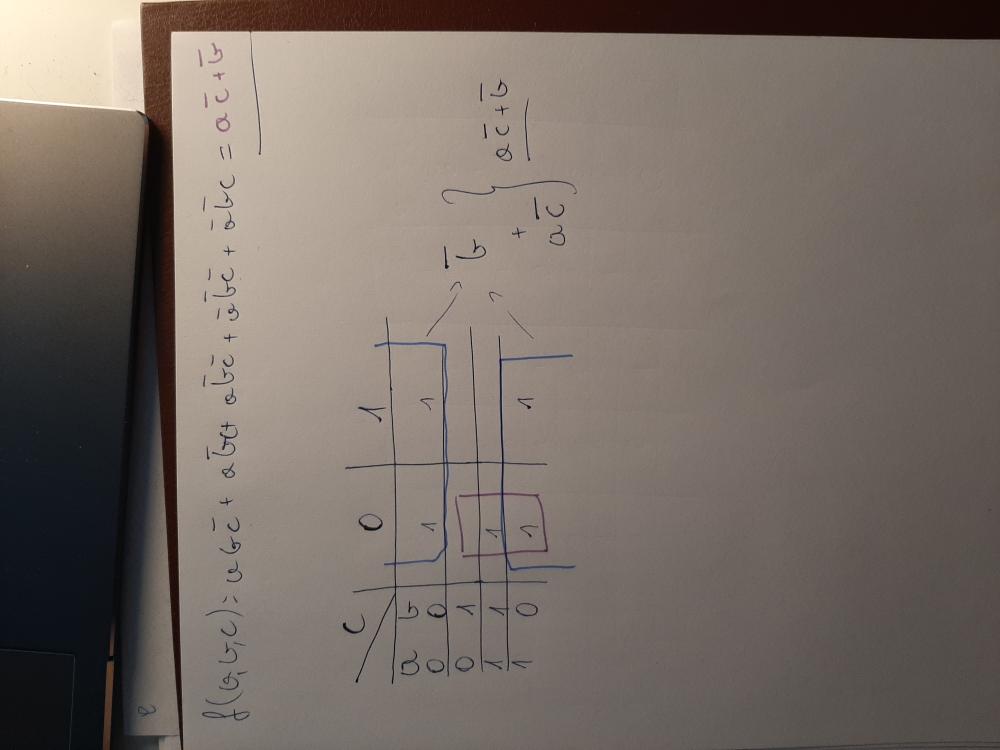 f(a,b,c) = abc̄ + ab̄c + ab̄c̄ + āb̄c̄ + āb̄c = ac̄ + b̄
c 0 1
a b
0 0 1 1
0 1
1 1 1
1 0 1 1
b̄
+
ac̄
ac̄ + b̄